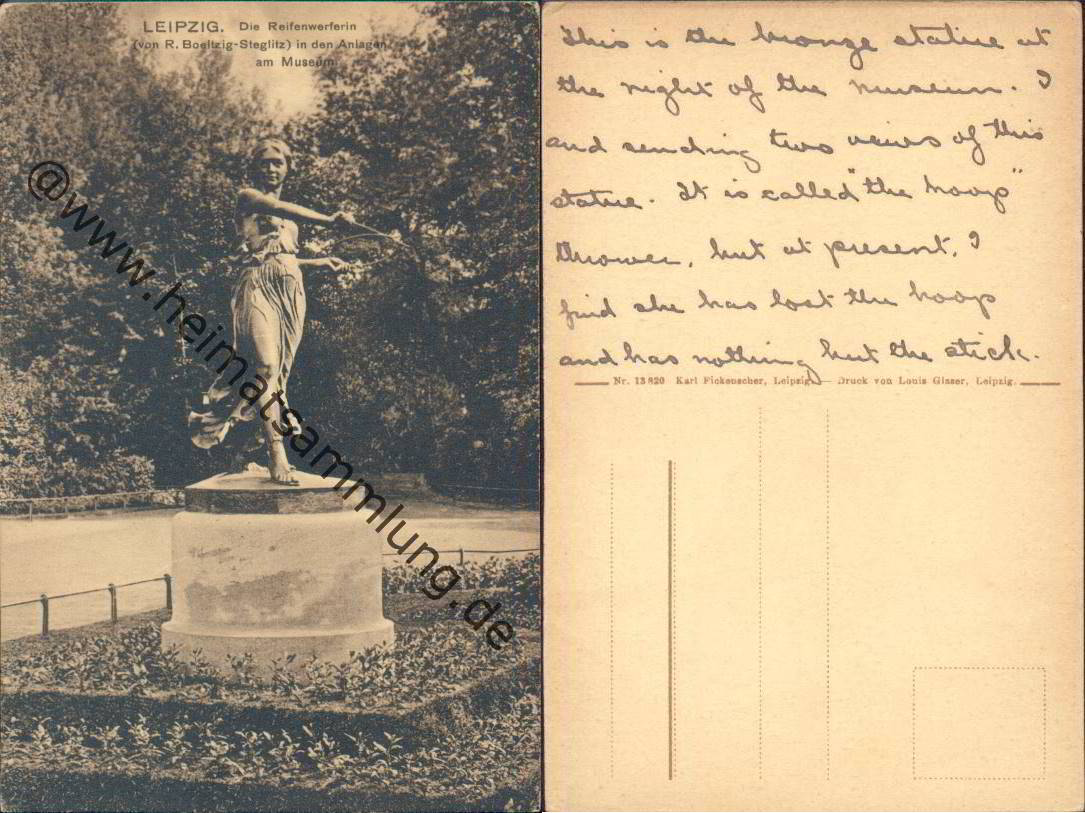 LEIPZIG. Die Reifenwerferin
(von R. Boeltzig-Steglitz) in den Anlagen
am Museum.
@www.heimatsammlung.de
This is the bronze statue at
the right of the museum. I
and sending two views of this
statue. It is called "the hoop"
thrower, but at present, I
find she has lost the hoop
and has nothing but the stick.
Nr. 13820 Karl Fickenscher, Leipzig. — Druck von Louis Glaser, Leipzig.